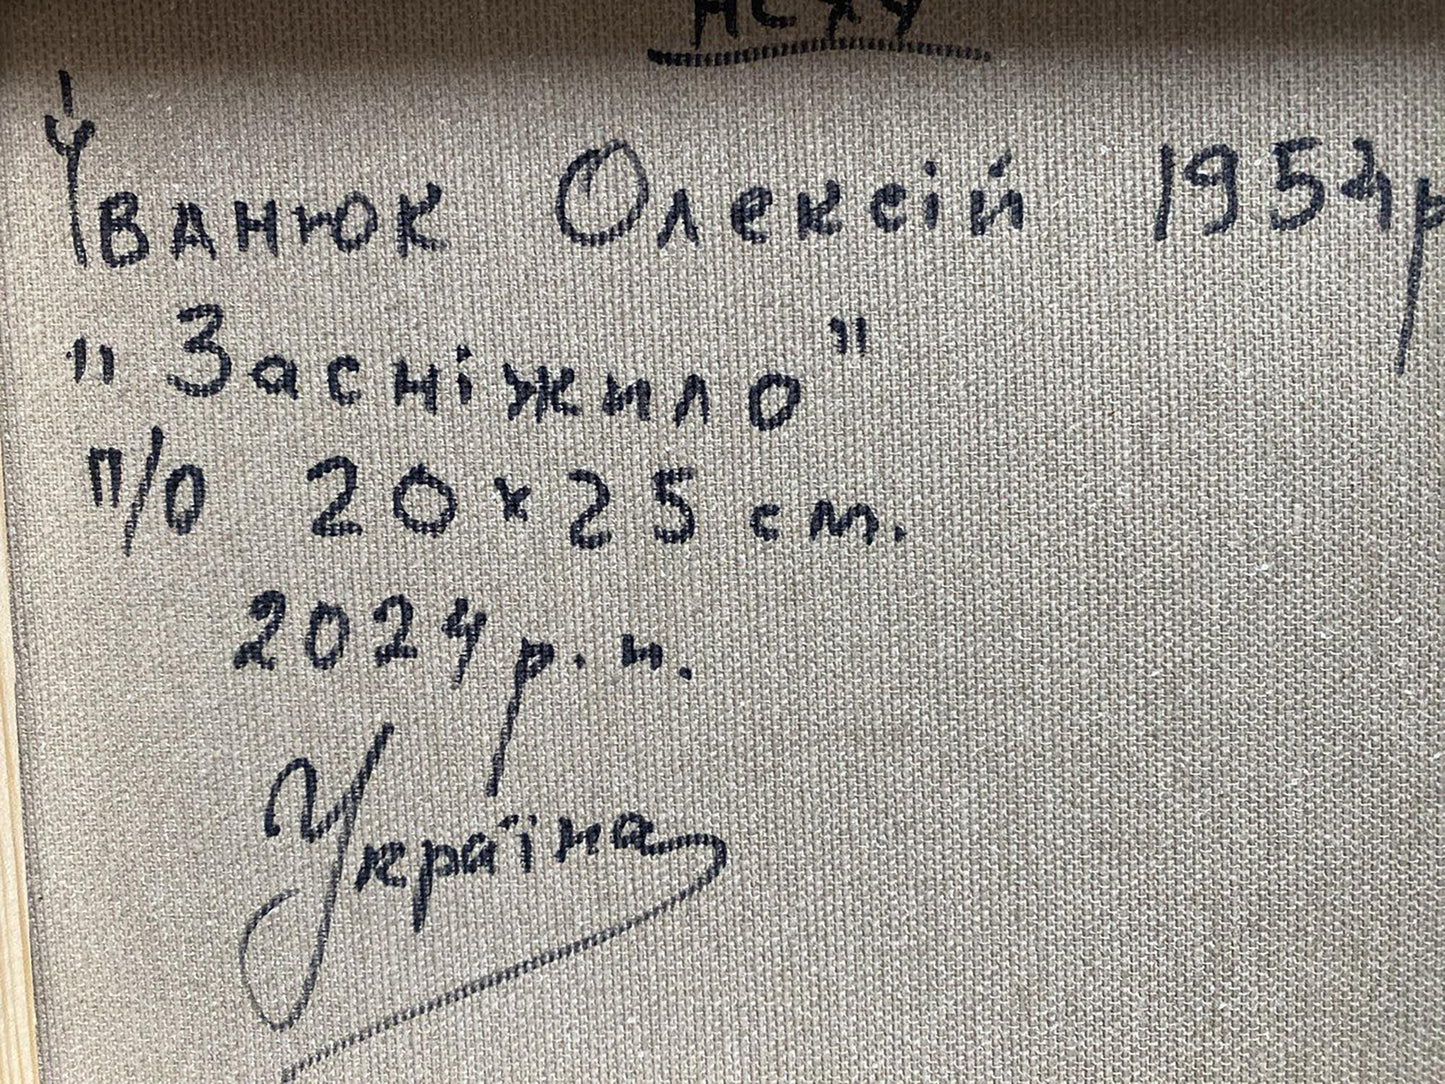 НСХУ
Іванюк Олексій 1954р
"Засніжило"
п/о 20х25 см.
2024 р.н.
Україна